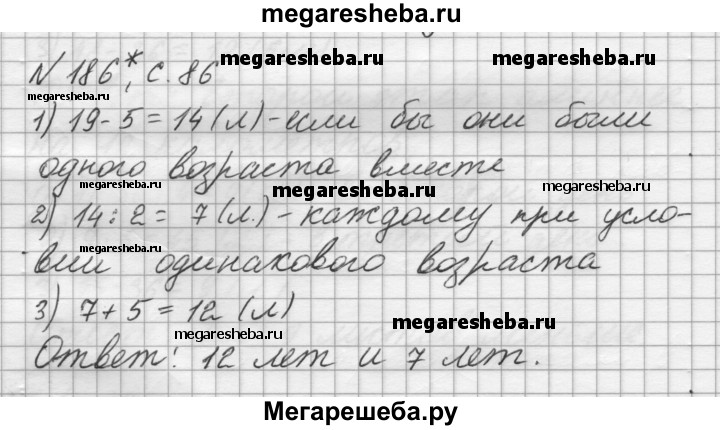 megaresheba.ru
N 186*, с. 86 megaresheba.ru megaresheba.ru
megaresheba.ru
1) 19-5=14(л)-если бы они были
одного возраста вместе
megaresheba.ru megaresheba.ru
2) 14:2= 7(л.)-каждому при усло-
megaresheba.ru
вии одинакового возраста
3) 7+5=12(л)
megaresheba.ru megaresheba.ru
Ответ: 12 лет и 7 лет.
Мегарешеба.ру